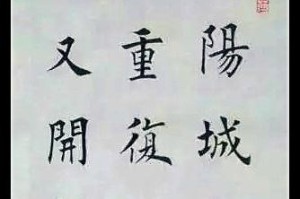 陽城
重復
又開